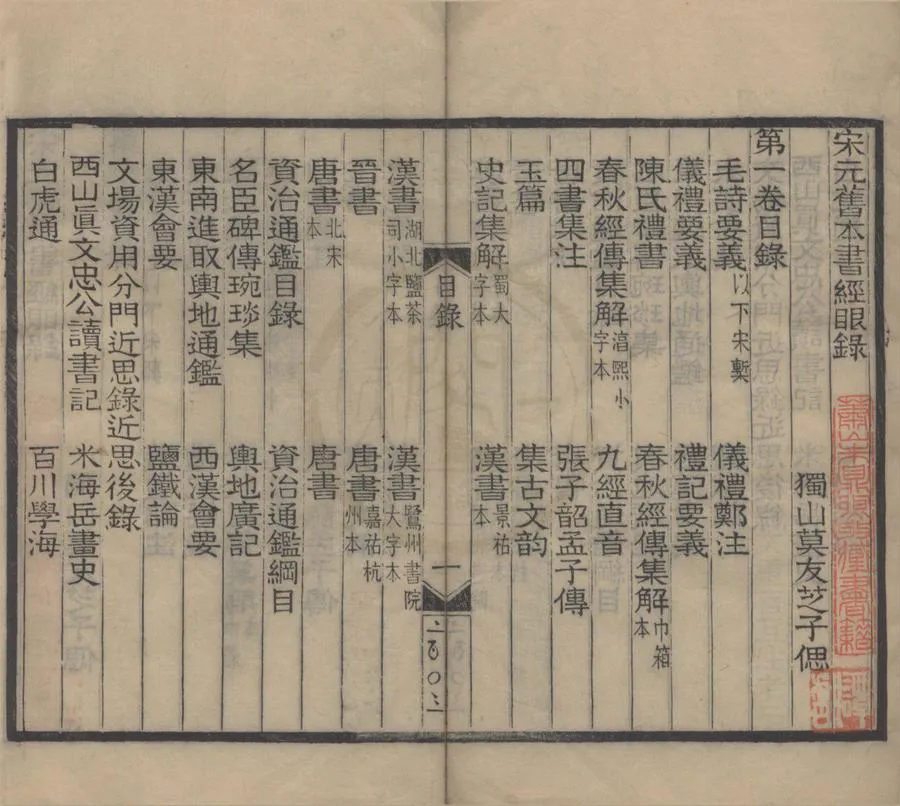 宋元舊本書經眼錄
獨山莫友芝子偲
第一卷目錄
毛詩要義以下宋槧 儀禮鄭注
儀禮要義 禮記要義
陳氏禮書 春秋經傳集解巾箱本
春秋經傳集解淳熙小字本 九經直音
四書集注 張子韶孟子傳
玉篇 集古文韵
史記集解蜀大字本 漢書景祐本
目錄 一
漢書湖北鹽茶司小字本 漢書鷺州書院大字本
晉書 唐書嘉祐杭州本
唐書北宋本 唐書
資治通鑑目錄 資治通鑑綱目
名臣碑傳琬琰集 輿地廣記
東南進取輿地通鑑 西漢會要
東漢會要 鹽鐵論
文場資用分門近思錄近思後錄
西山眞文忠公讀書記 米海岳畫史
白虎通 百川學海